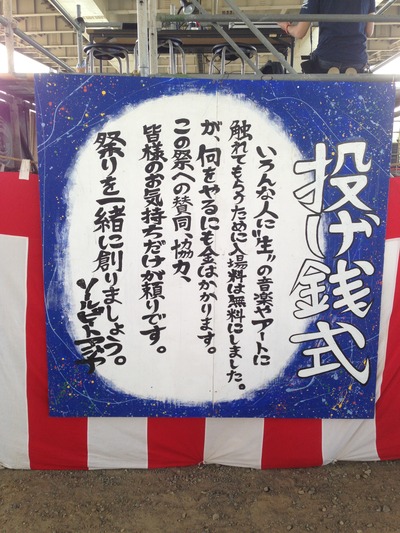 投げ銭式
いろんな人に"生"の音楽やアートに
触れてもらうために入場料は無料にしました。
が、何をやるにも金はかかります。
この祭への賛同、協力、
皆様のお気持ちだけが頼りです。
祭りを一緒に創りましょう。
ソールビートアジア